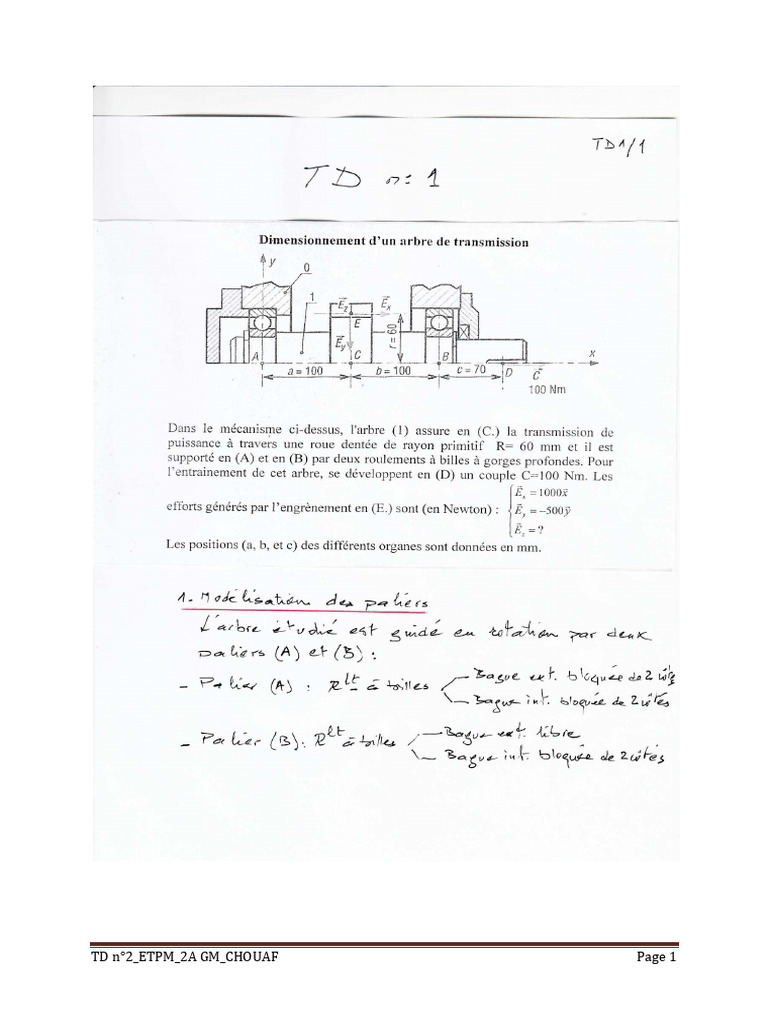 TD1/1
TD n: 1
Dimensionnement d'un arbre de transmission
y
0
1
E⃗z
E⃗x
E
E⃗y
r = 60
A
C
B
x
a = 100
b = 100
c = 70
D
C⃗
100 Nm
Dans le mécanisme ci-dessus, l'arbre (1) assure en (C.) la transmission de
puissance à travers une roue dentée de rayon primitif R= 60 mm et il est
supporté en (A) et en (B) par deux roulements à billes à gorges profondes. Pour
l'entrainement de cet arbre, se développent en (D) un couple C=100 Nm. Les
efforts générés par l'engrènement en (E.) sont (en Newton) :
E⃗x = 1000x⃗
E⃗y = −500y⃗
E⃗z = ?
Les positions (a, b, et c) des différents organes sont données en mm.
1- Modélisation des paliers
L'arbre étudié est guidé en rotation par deux
paliers (A) et (B) :
- Palier (A) : Rlt à billes
Bague ext. bloquée de 2 côtés
Bague int. bloquée de 2 côtés
- Palier (B) : Rlt à billes
Bague ext. libre
Bague int. bloquée de 2 côtés
TD n°2_ETPM_2A GM_CHOUAF
Page 1